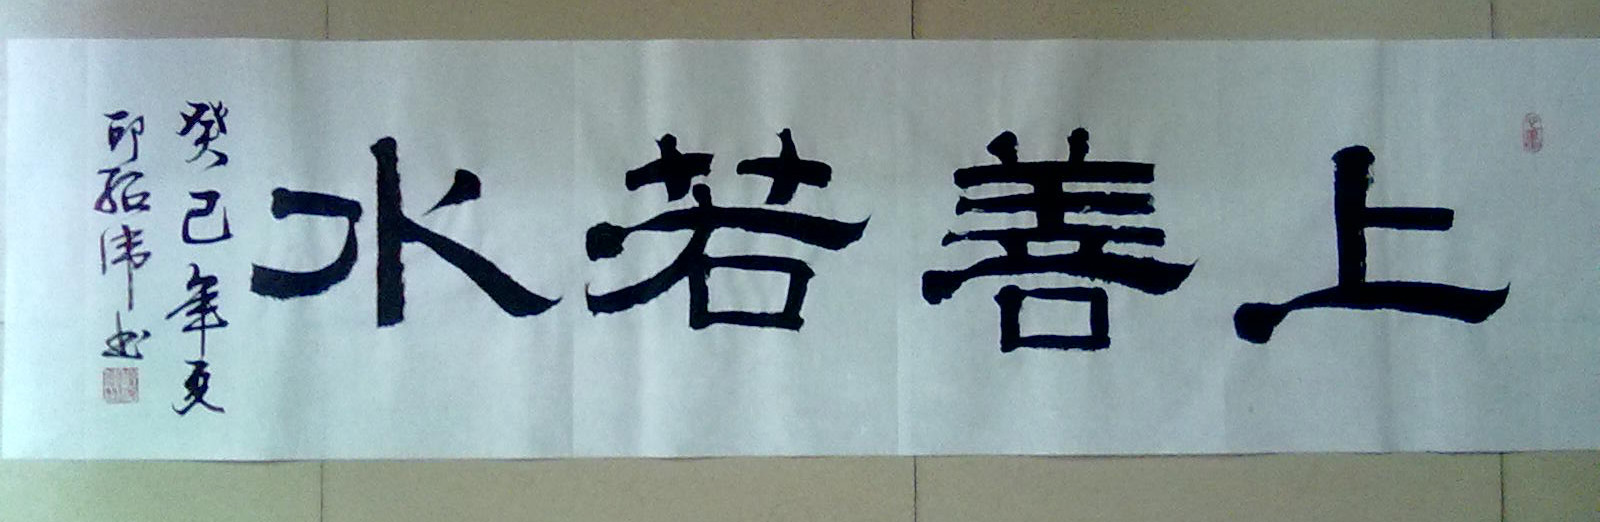 上善若水
癸巳年夏
邱绍伟书